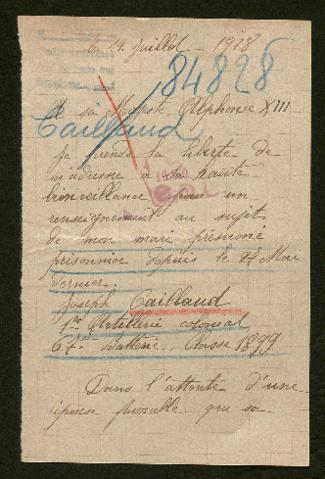 le 19 juillet 1918
84828
A sa Majesté Alphonse XIII
Caillaud
Je prends la liberté de
m'adresse a sa haute
bienveillance pour un
renseignement au sujet
de mon mari présumé
prisonnier depuis le 27 Mai
dernier.
Joseph Caillaud
1er Artillerie colonial
67e Batterie, Classe 1899
Dans l'attente d'une
réponse favorable que sa